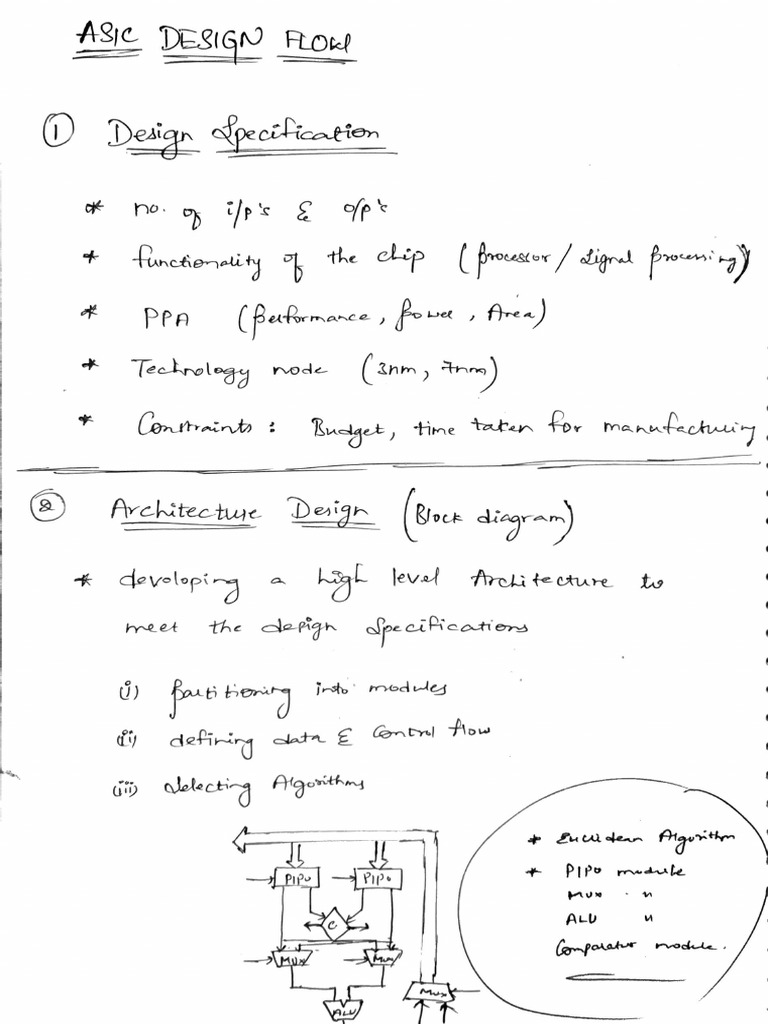 ASIC DESIGN FLOW
① Design Specification
* no. of i/p's & o/p's
* functionality of the chip (processor / signal processing)
* PPA (performance, power, Area)
* Technology node (3nm, 7nm)
* Constraints : Budget, time taken for manufacturing
② Architecture Design (Block diagram)
* devoloping a high level Architecture to
meet the design specifications
(i) partitioning into modules
(ii) defining data & control flow
(iii) selecting Algorithms
* Euclidean Algorithm
* PIPO module
MUX "
ALU "
Comparator module.
PIPO PIPO
C
MUX MUX
MUX
ALU